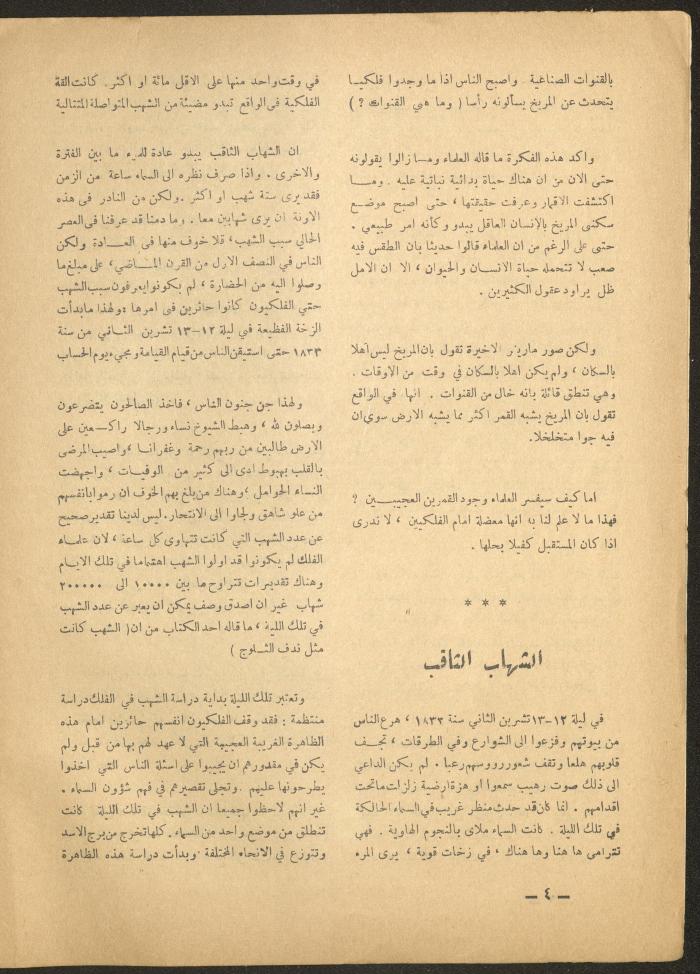 بالقنوات الصناعية . واصبح الناس اذا ما وجدوا فلكيــا
يتحدث عن المريخ يسألونه رأسا ( وما هي القنوات ؟ )
واكد هذه الفكرة ما قاله العلماء ومــا زالوا يقولونه
حتى الان من ان هناك حياة بدائية نباتية عليه . ومــا
اكتشفت الاقمار وعرفت حقيقتها ، حتى اصبح موضــع
سكنى المريخ بالإنسان العاقل يبدو وكأنه امر طبيعي .
حتى على الرغم من ان العلماء قالوا حديثا بان الطقس فيه
صعب لا تتحمله حياة الانسان والحيوان ، الا ان الامل
ظل يراود عقول الكثيرين .
ولكن صور مارينر الاخيرة تقول بان المريخ ليس اهلا
بالسكان ، ولم يكن اهلا بالسكان في وقت من الاوقات .
وهي تنطق قائلة بانه خال من القنوات . انها في الواقع
تقول بان المريخ يشبه القمر اكثر مما يشبه الارض سوى ان
فيه جوا متخلخلا.
اما كيف سيفسر العلماء وجود القمرين العجيبــين ؟
فهذا ما لا علم لنا به انها معضلة امام الفلكيين ، لا ندرى
اذا كان المستقبل كفيلا بحلها .
* * *
الشهاب الثاقب
في ليلة ١٢-١٣ تشرين الثاني سنة ١٨٣٣ ، هرع الناس
من بيوتهم وفزعوا الى الشوارع وفي الطرقات ، تجــف
قلوبهم هلعا وتقف شعور رووسهم رعبا . لم يكن الداعي
الى ذلك صوت رهيب سمعوا او هزة ارضية زلزلت ما تحت
اقدامهم . انما كان قد حدث منظر غريب في السماء الحالكة
في تلك الليلة . كانت السماء ملاى بالنجوم الهاوية . فهي
تترامى ها هنا وها هناك ، في زخات قوية ، يرى المرء
في وقت واحد منها على الاقل مائة او اكثر. كانت القبة
الفلكية في الواقع تبدو مضيئة من الشهب المتواصلة المتتالية
ان الشهاب الثاقب يبدو عادة للمرء ما بين الفترة
والاخرى . واذا صرف نظره الى السماء ساعة من الزمن
فقد يرى ستة شهب او اكثر . ولكن من النادر في هذه
الاونة ان يرى شهابين معا . وما دمنا قد عرفنا في العصر
الحالي سبب الشهب، فلا خوف منها في العــادة ولكن
الناس في النصف الاول من القرن المــاضي، على مبلغ ما
وصلوا اليه من الحضارة ، لم يكونوا يعرفون سبب الشهب
حتي الفلكيون كانوا حائرين في امرها :ولهذا ما بدأت
الزخة الفظيعة في ليلة ١٢-١٣ تشرين الثــاني من سنة
١٨٣٣ حتى استيقن الناس من قيام القيامة ومجيء يوم الحساب
ولهذا جن جنون الناس ، فاخذ الصالحون يتضرعون
ويصلون لله ، وهبط الشيوخ نساء ورجالا راكــعين على
الارض طالبين من ربهم رحمة وغفرانــا ، واصيب المرضى
بالقلب بهبوط ادى الى كثير من الوفيات ، واجهضت
النساء الحوامل ؛وهناك من بلغ بهم الخوف ان رموا بانفسهم
من علو شاهق ولجاوا الى الانتحار. ليس لدينا تقدير صحيح
عن عدد الشهب التي كانت تتهاوى كل ساعة ، لان علمــاء
الفلك لم يكونوا قد اولوا الشهب اهتماما في تلك الايــام
وهناك تقديرات تتراوح ما بين ١٠٠٠٠ الى ٢٠٠٠٠٠
شهاب غير ان اصدق وصف يمكن ان يعبر عن عدد الشهب
في تلك الليلة ، ما قاله احد الكتاب من ان( الشهب كانت
مثل ندف الثــلوج )
وتعتبر تلك الليلة بداية دراسة الشهب في الفلك دراسة
منتظمة : فقد وقف الفلكيون انفسهم حائرين امام هذه
الظاهرة الغريبة العجيبة التي لا عهد لهم بها من قبل ولم
يكن في مقدورهم ان يجيبوا على اسئلة الناس التي اخذوا
يطرحونها عليهم . وتجلى تقصيرهم في فهم شؤون السماء .
غير انهم لاحظوا جميعا ان الشهب في تلك الليلة كانت
تنطلق من موضع واحد من السماء. كلها تخرج من برج الاسد
وتتوزع في الانحاء المختلفة . وبدأت دراسة هذه الظاهرة
— ٤ —